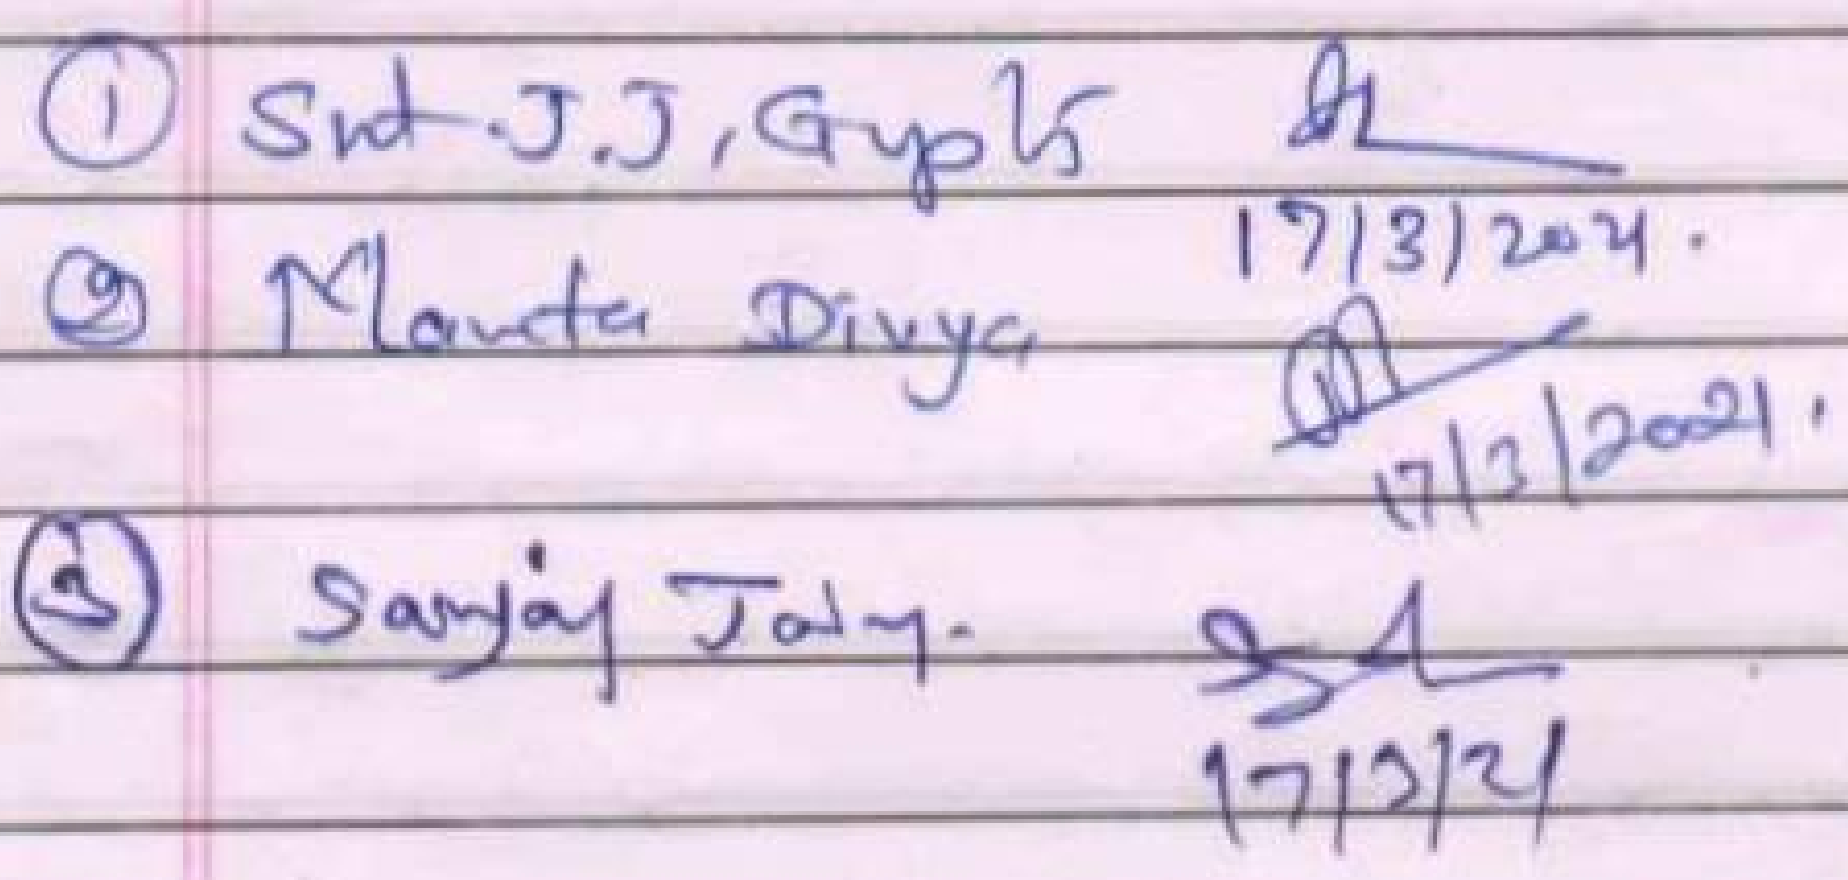 ① Smt. J.J. Gupta
17/3/2021.
② Mamta Divya
17/3/2021.
③ Sanjay Jain.
17/3/21